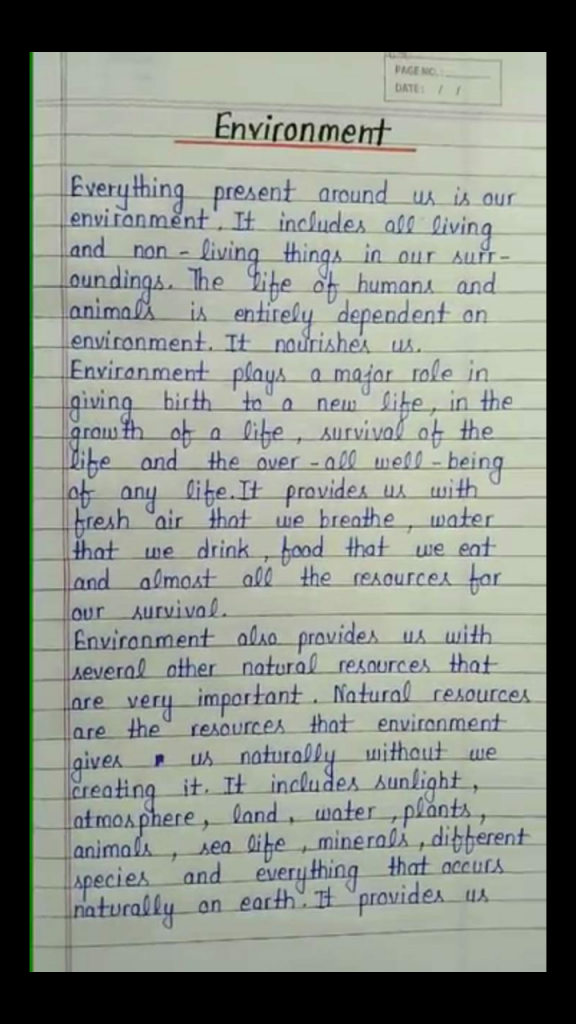 PAGE NO.:
DATE: / /
Environment
Everything present around us is our
environment. It includes all living
and non - living things in our surr-
oundings. The life of humans and
animals is entirely dependent on
environment. It nourishes us.
Environment plays a major role in
giving birth to a new life, in the
growth of a life, survival of the
life and the over - all well - being
of any life. It provides us with
fresh air that we breathe, water
that we drink, food that we eat
and almost all the resources for
our survival.
Environment also provides us with
several other natural resources that
are very important. Natural resources
are the resources that environment
gives us naturally without we
creating it. It includes sunlight,
atmosphere, land, water, plants,
animals, sea life, minerals, different
species and everything that occurs
naturally on earth. It provides us